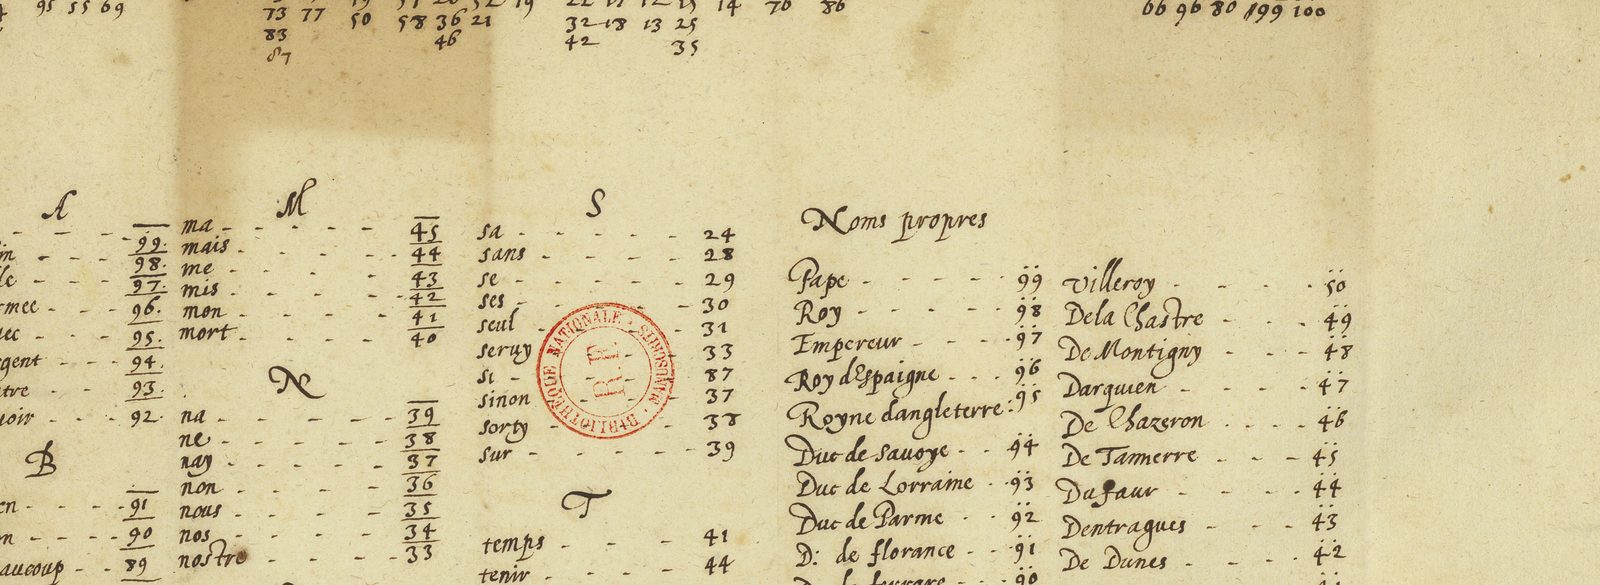 95 55 69
73 77 50 58 36 21 32 18 13 25
83 46 42 35
87
14 70 86
66 96 80 199 100
A
99.
98.
97.
96.
95.
gent - - - 94.
tre - - 93.
oir - - - 92.
B
en - - - - 91
n - - - - 90
aucoup - - 89
M
ma - - - - - 45
mais - - - - 44
me - - - - - 43
mis - - - - - 42
mon - - - - 41
mort - - - - 40
N
na - - - - - 39
ne - - - - - 38
nay - - - - - 37
non - - - - 36
nous - - - - 35
nos - - - - 34
nostre - - - 33
S
sa - - - - - 24
sans - - - - 28
se - - - - - 29
ses - - - - - 30
seul - - - - 31
seruy - - - - 33
si - - - - - 87
sinon - - - - 37
sorty - - - - 38
sur - - - - - 39
T
temps - - - 41
tenir - - - 44
BIBLIOTHEQUE NATIONALE · MANUSCRITS ·
R.F.
Noms propres
Pape - - - - 99
Roy - - - - - 98
Empereur - - - 97
Roy despaigne - - - 96
Royne dangleterre : 95
Duc de savoye - - 94
Duc de Lorraine - 93
Duc de Parme - - 92
D: de florance - - 91
90
Villeroy - - - - 50
Dela Chastre - - - 49
De Montigny - - - 48
Darquien - - - - 47
De Chazeron - - - - 46
De Tannerre - - - 45
Dufaur - - - - 44
Dentragues - - - 43
De Dunes - - - 42